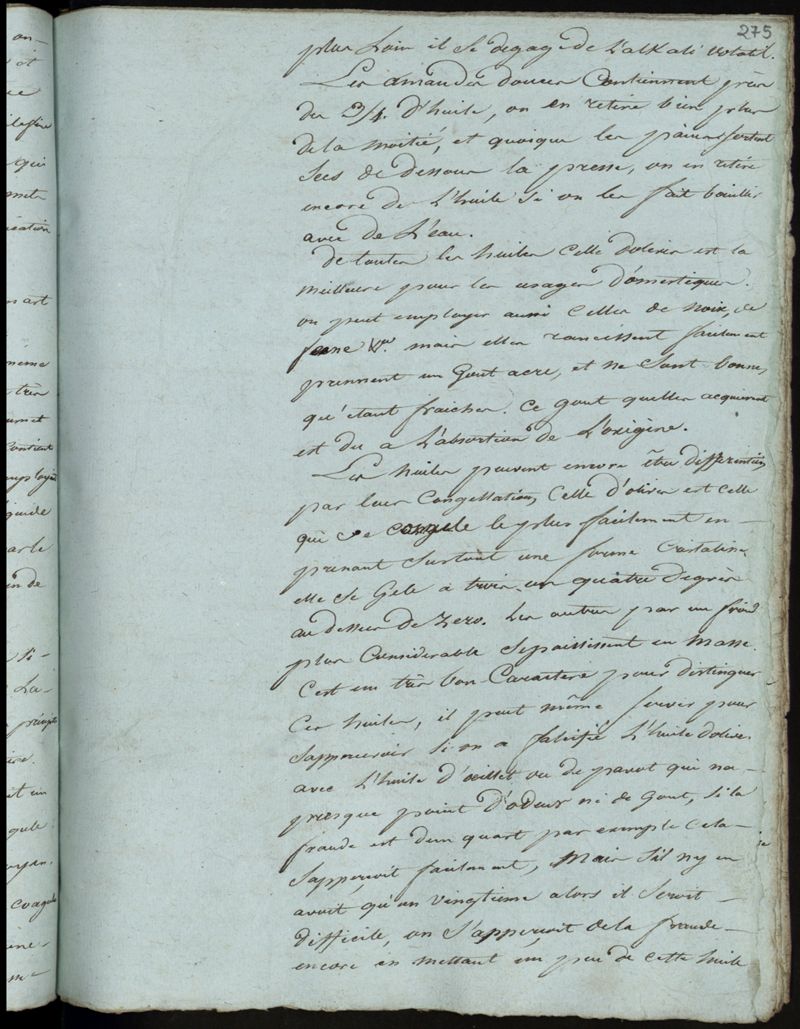 275
plus Loin il se degage de L'alkali volatil.
Les amandes douces Contiennent près
des 3/4. d'huile, on en retire bien plus
de la moitié, et quoique les pains sortent
secs de dessous la presse, on en retire
encore de L'huile si on les fait bouillir
avec de L'eau.
de toutes les huiles celle d'olives est la
meilleure pour les usages domestiques.
on peut employer aussi celles de noix, de
fene &a. mais elles rancissent facilement
prennent un Gout acre, et ne sont bonnes
qu'étant fraiches. Ce gout quelles acquierent
est du a L'absortion de L'oxigène.
Les huiles peuvent encore être differentiées
par leur Congellation, Celle d'olives est celle
qui se congele le plus facilement en -
prenant surtout une forme Cristaline
elle se Gele à trois ou quatre degrés
au dessus de Zero. les autres par un froid
plus Considerable s'epaississent en Masse.
C'est un très bon Caractere pour distinguer
Ces huiles, il peut même servir pour
s'appercevoir si on a falsifié L'huile d'olives
avec L'huile d'oeillet ou de pavot qui na -
presque point d'odeur ni de Gout, si la
fraude est d'un quart par exemple cela -
s'apperçoit facilement, Mais s'il n'y en
avoit qu'un vingtieme alors il seroit -
difficile, on s'apperçoit de la fraude -
encore en mettant un peu de cette huile